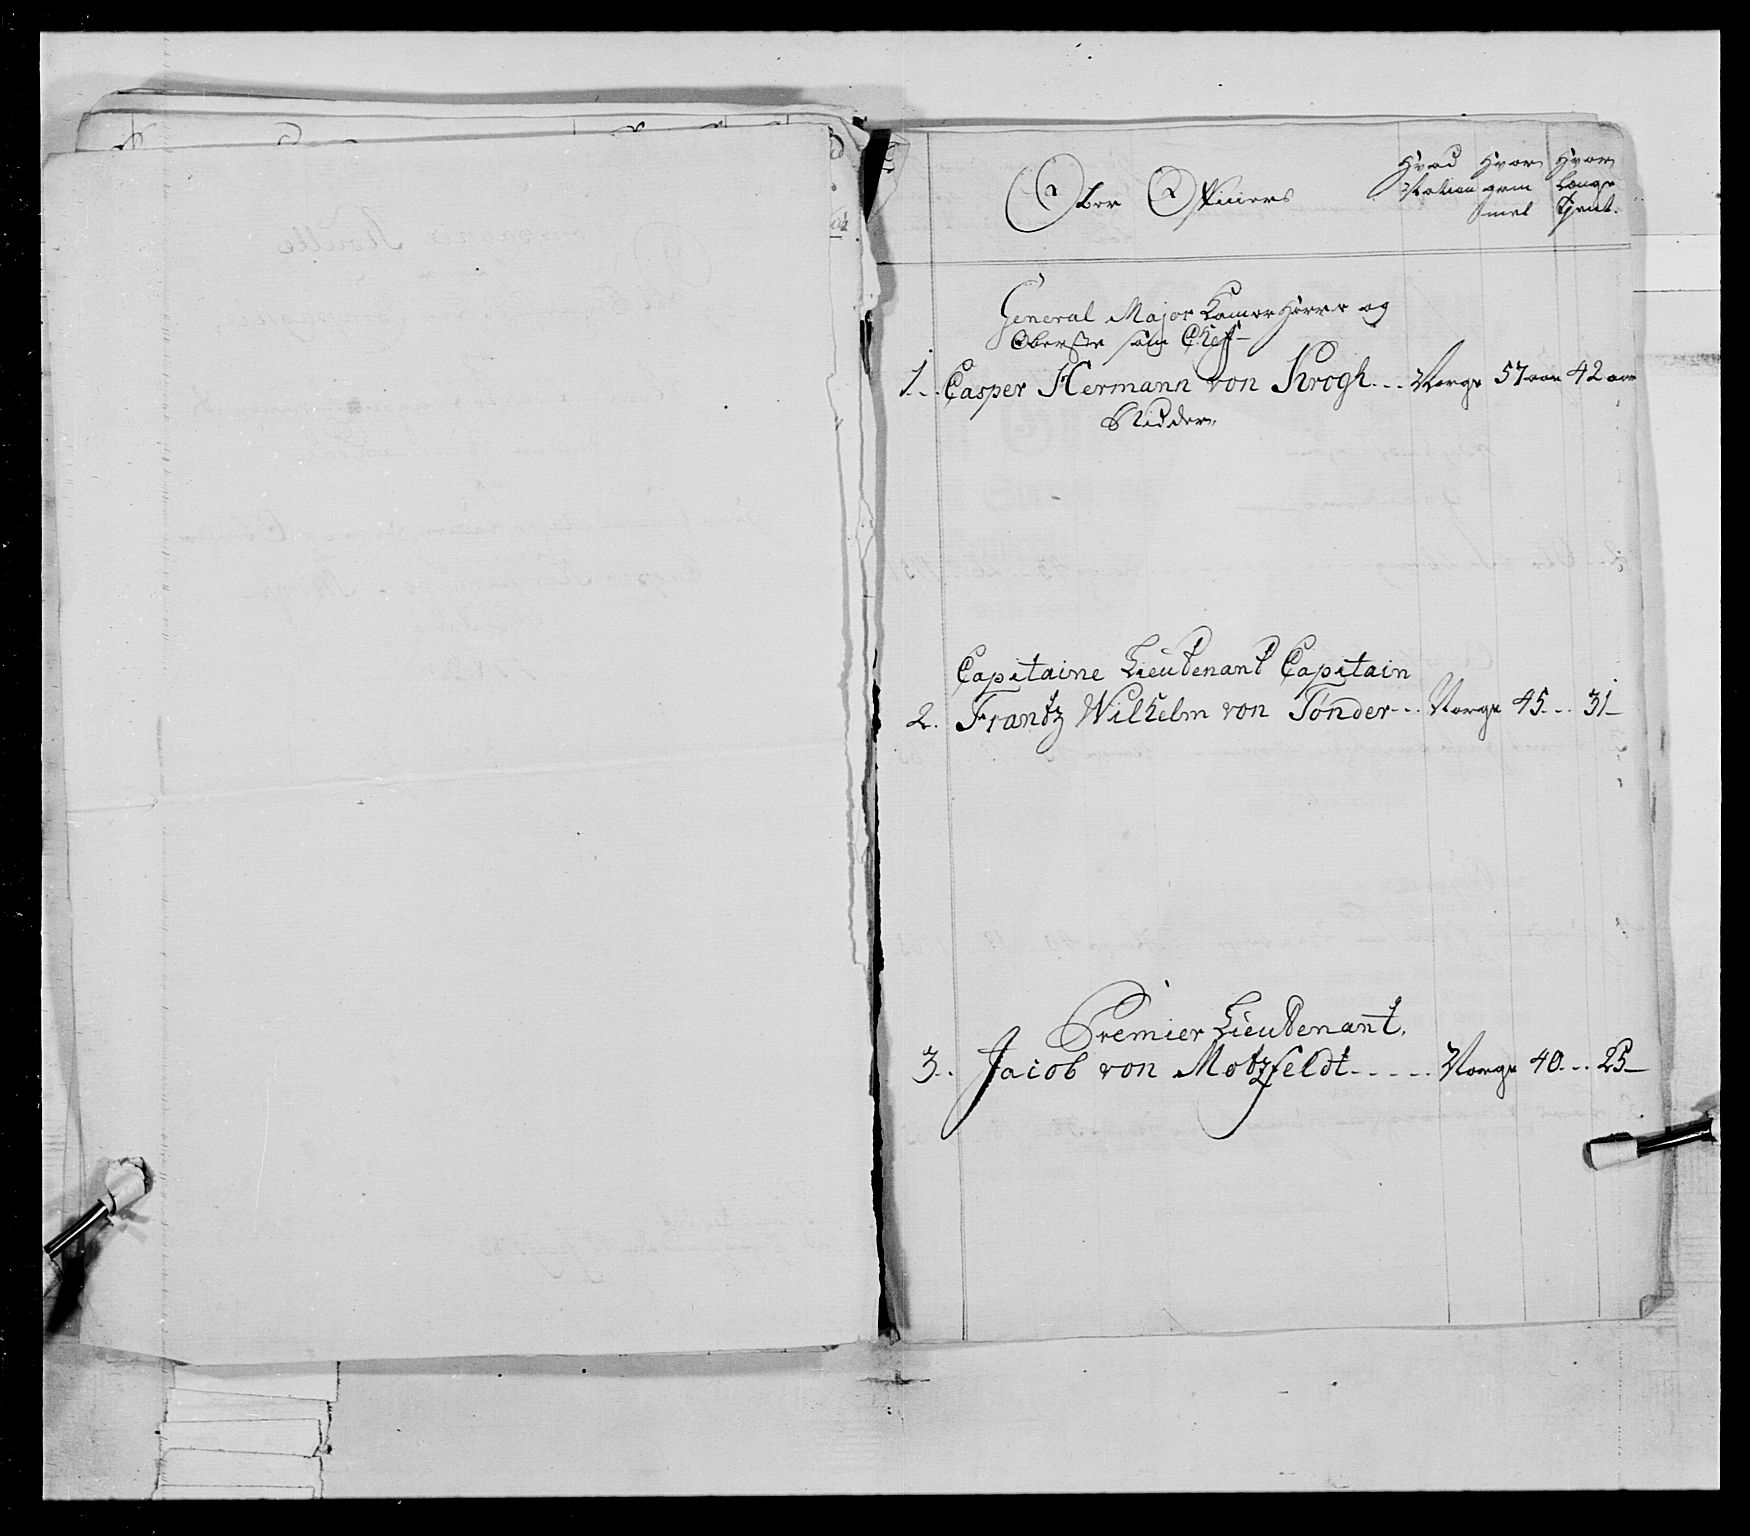 Ober Officiers
Hvad Nation
Hvor gam mel
Hvor Længe Tjent.
General Major Kamer Herre og
Oberste som Cheff
1. Casper Hermann von Krogh... Norge 57 aar 42 aar
Ridder.
Capitaine Lieutenant Capitain
2. Frantz Wilhelm von Tønder... Norge 45... 31
Premier Lieutenant.
3. Jacob von Motzfeldt..... Norge 40... 25